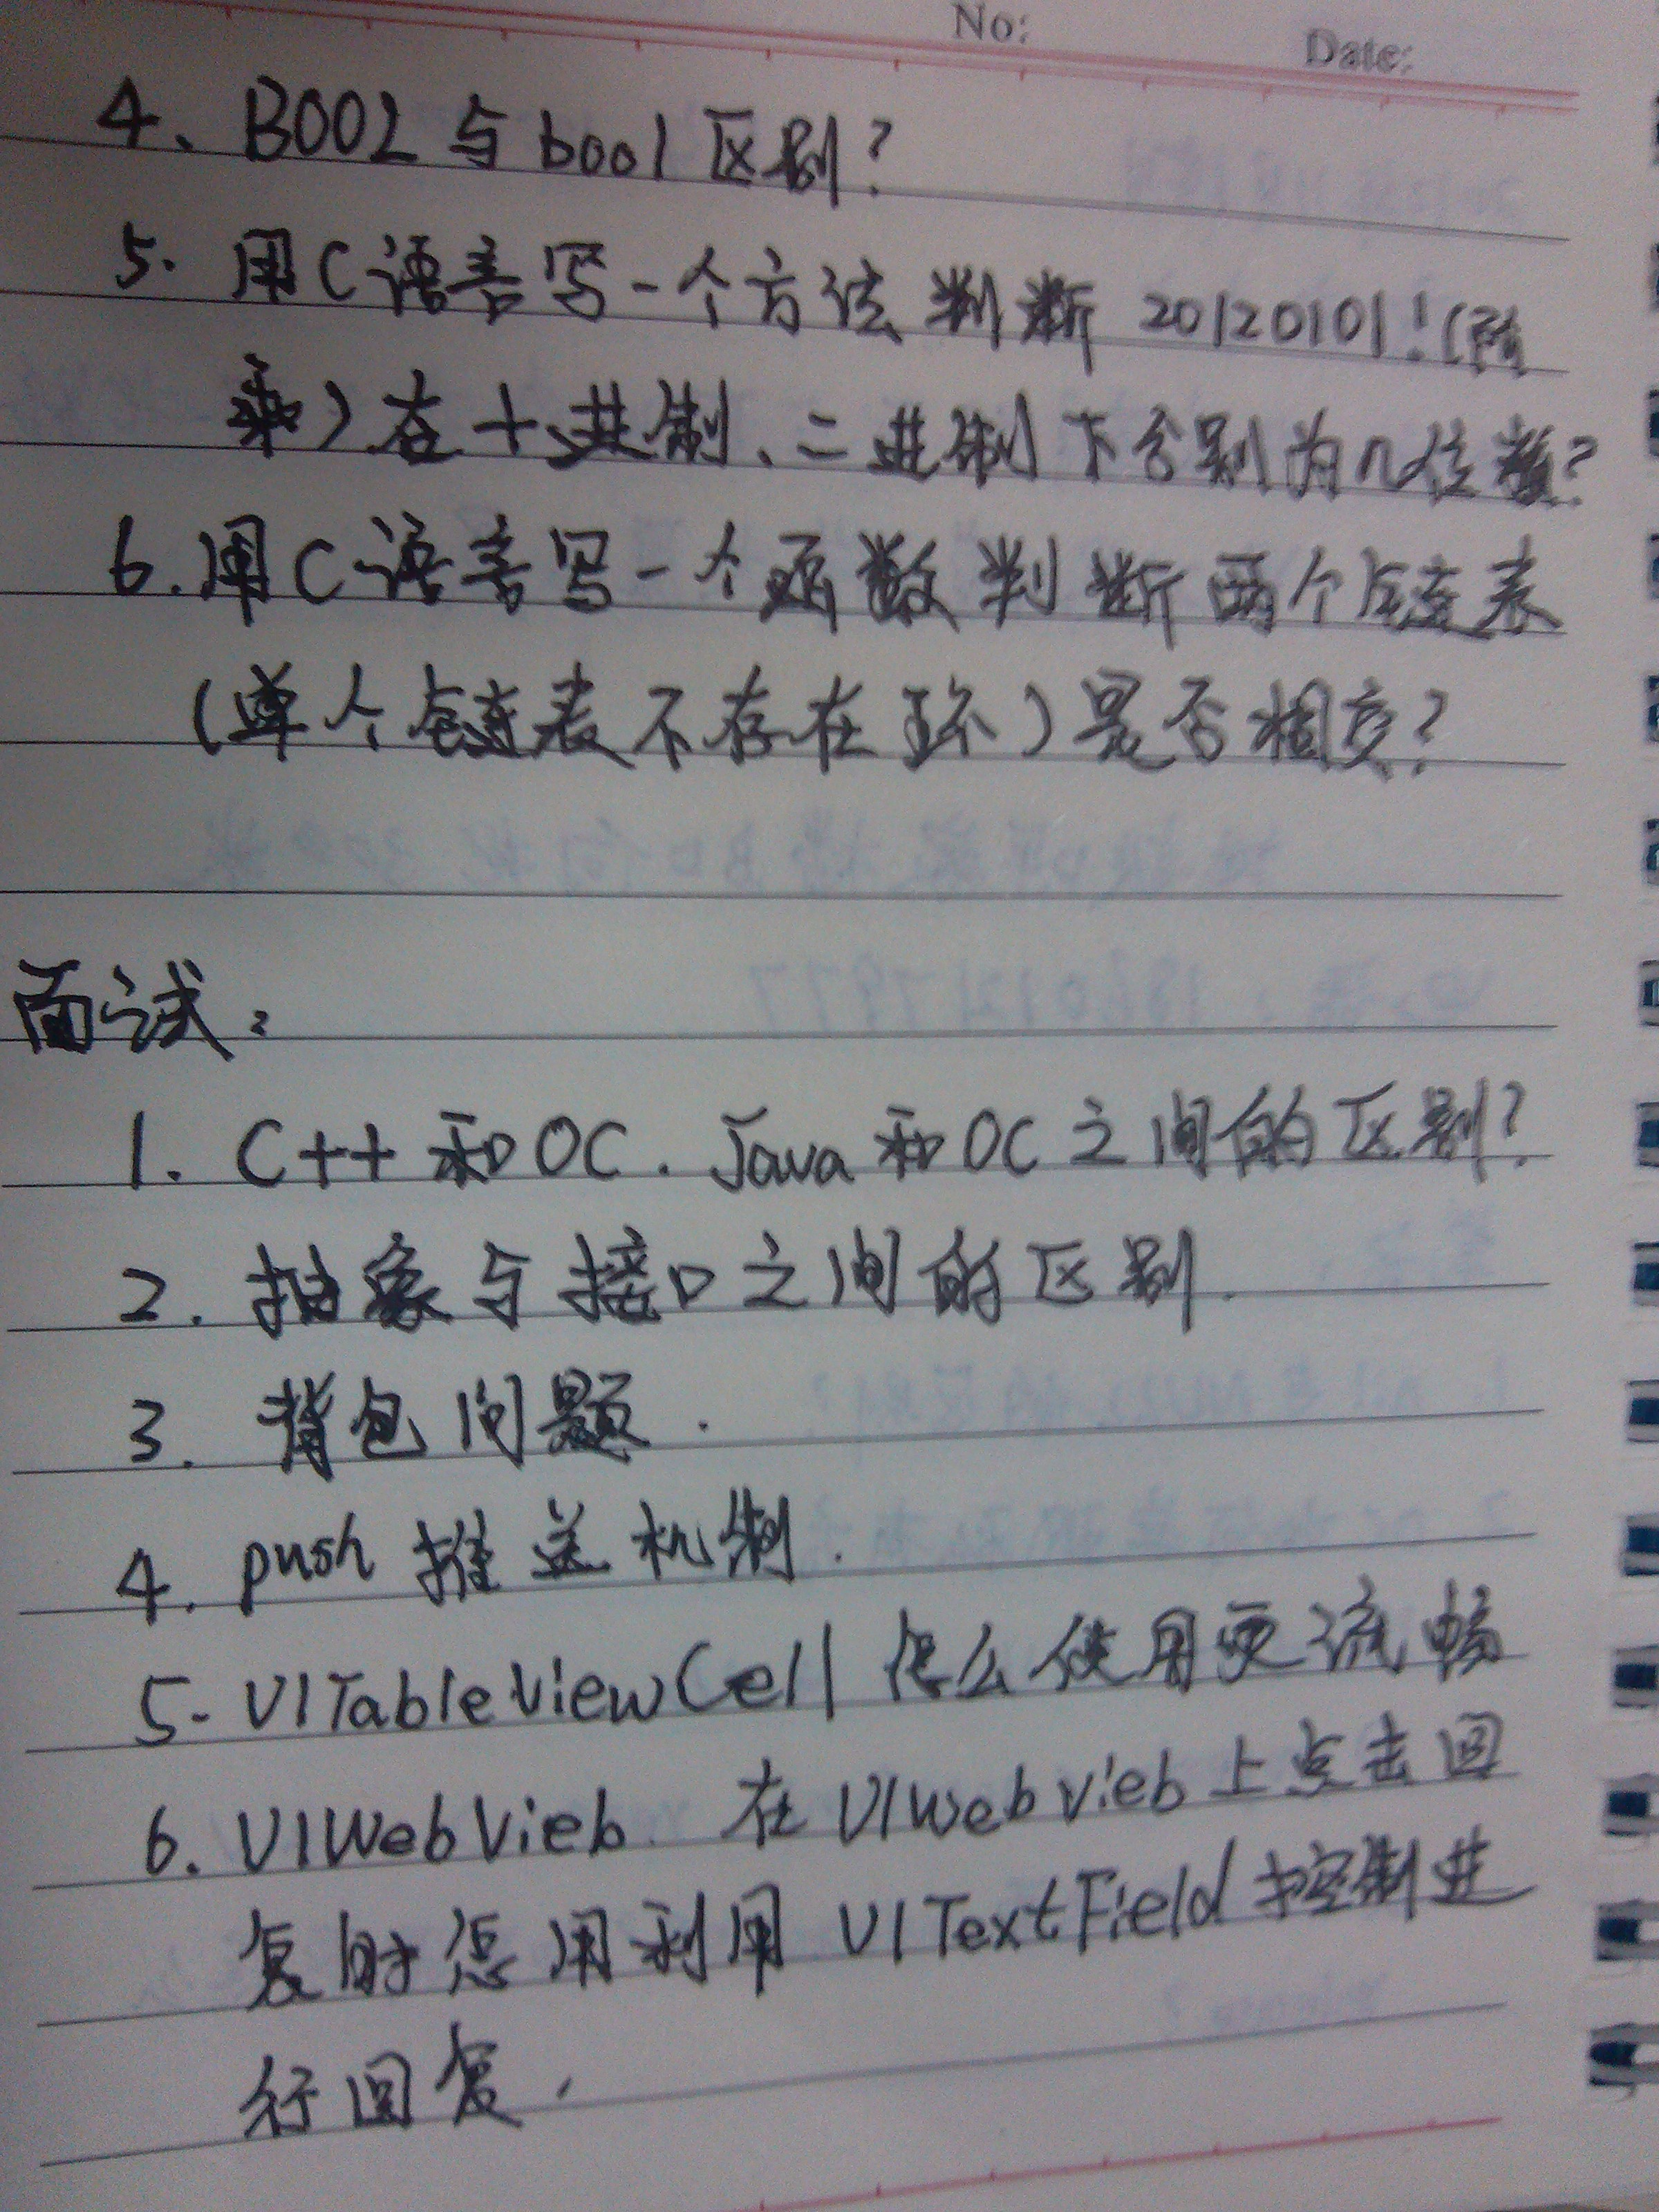 No:
Date:
4、BOOL与bool区别?
5. 用C语言写一个方法判断20120101!(阶
乘)在十进制、二进制下分别为几位数?
6.用C语言写一个函数判断两个链表
(单个链表不存在环)是否相交?
面试:
1. C++和OC. Java和OC之间的区别?
2. 抽象与接口之间的区别.
3. 背包问题.
4. push推送机制.
5. UITableViewCell 怎么使用更流畅
6. UIWebVieb 在UIWebvieb上点击回
复时怎用利用UITextField控制进
行回复.